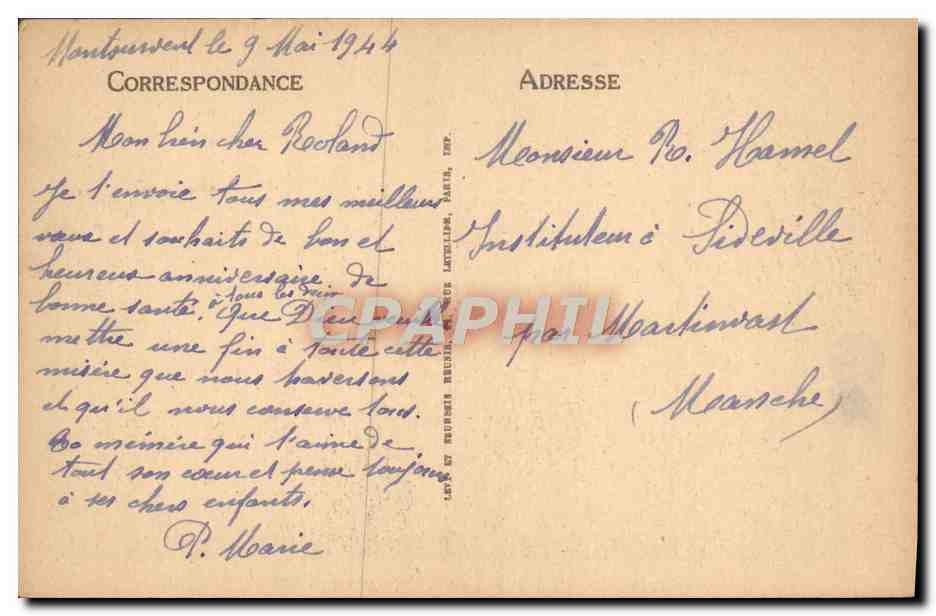 Montsurvent le 9 Mai 1944
CORRESPONDANCE
Mon bien cher Roland
Je t'envoie tous mes meilleurs
vœux et souhaits de bon et
heureux anniversaire de
bonne santé, à tous les deux
Que Dieu veuille
mettre une fin à toute cette
misère que nous traversons
et qu'il nous conserve tous.
Ta mémère qui t'aime de
tout son cœur et pense toujours
à ses chers enfants.
P. Marie
LEVY ET NEURDEIN REUNIS, 44, RUE LETELLIER, PARIS, IMP.
ADRESSE
Monsieur R. Hamel
Instituteur à Sideville
par Martinvast
(Manche)
CPAPHIL